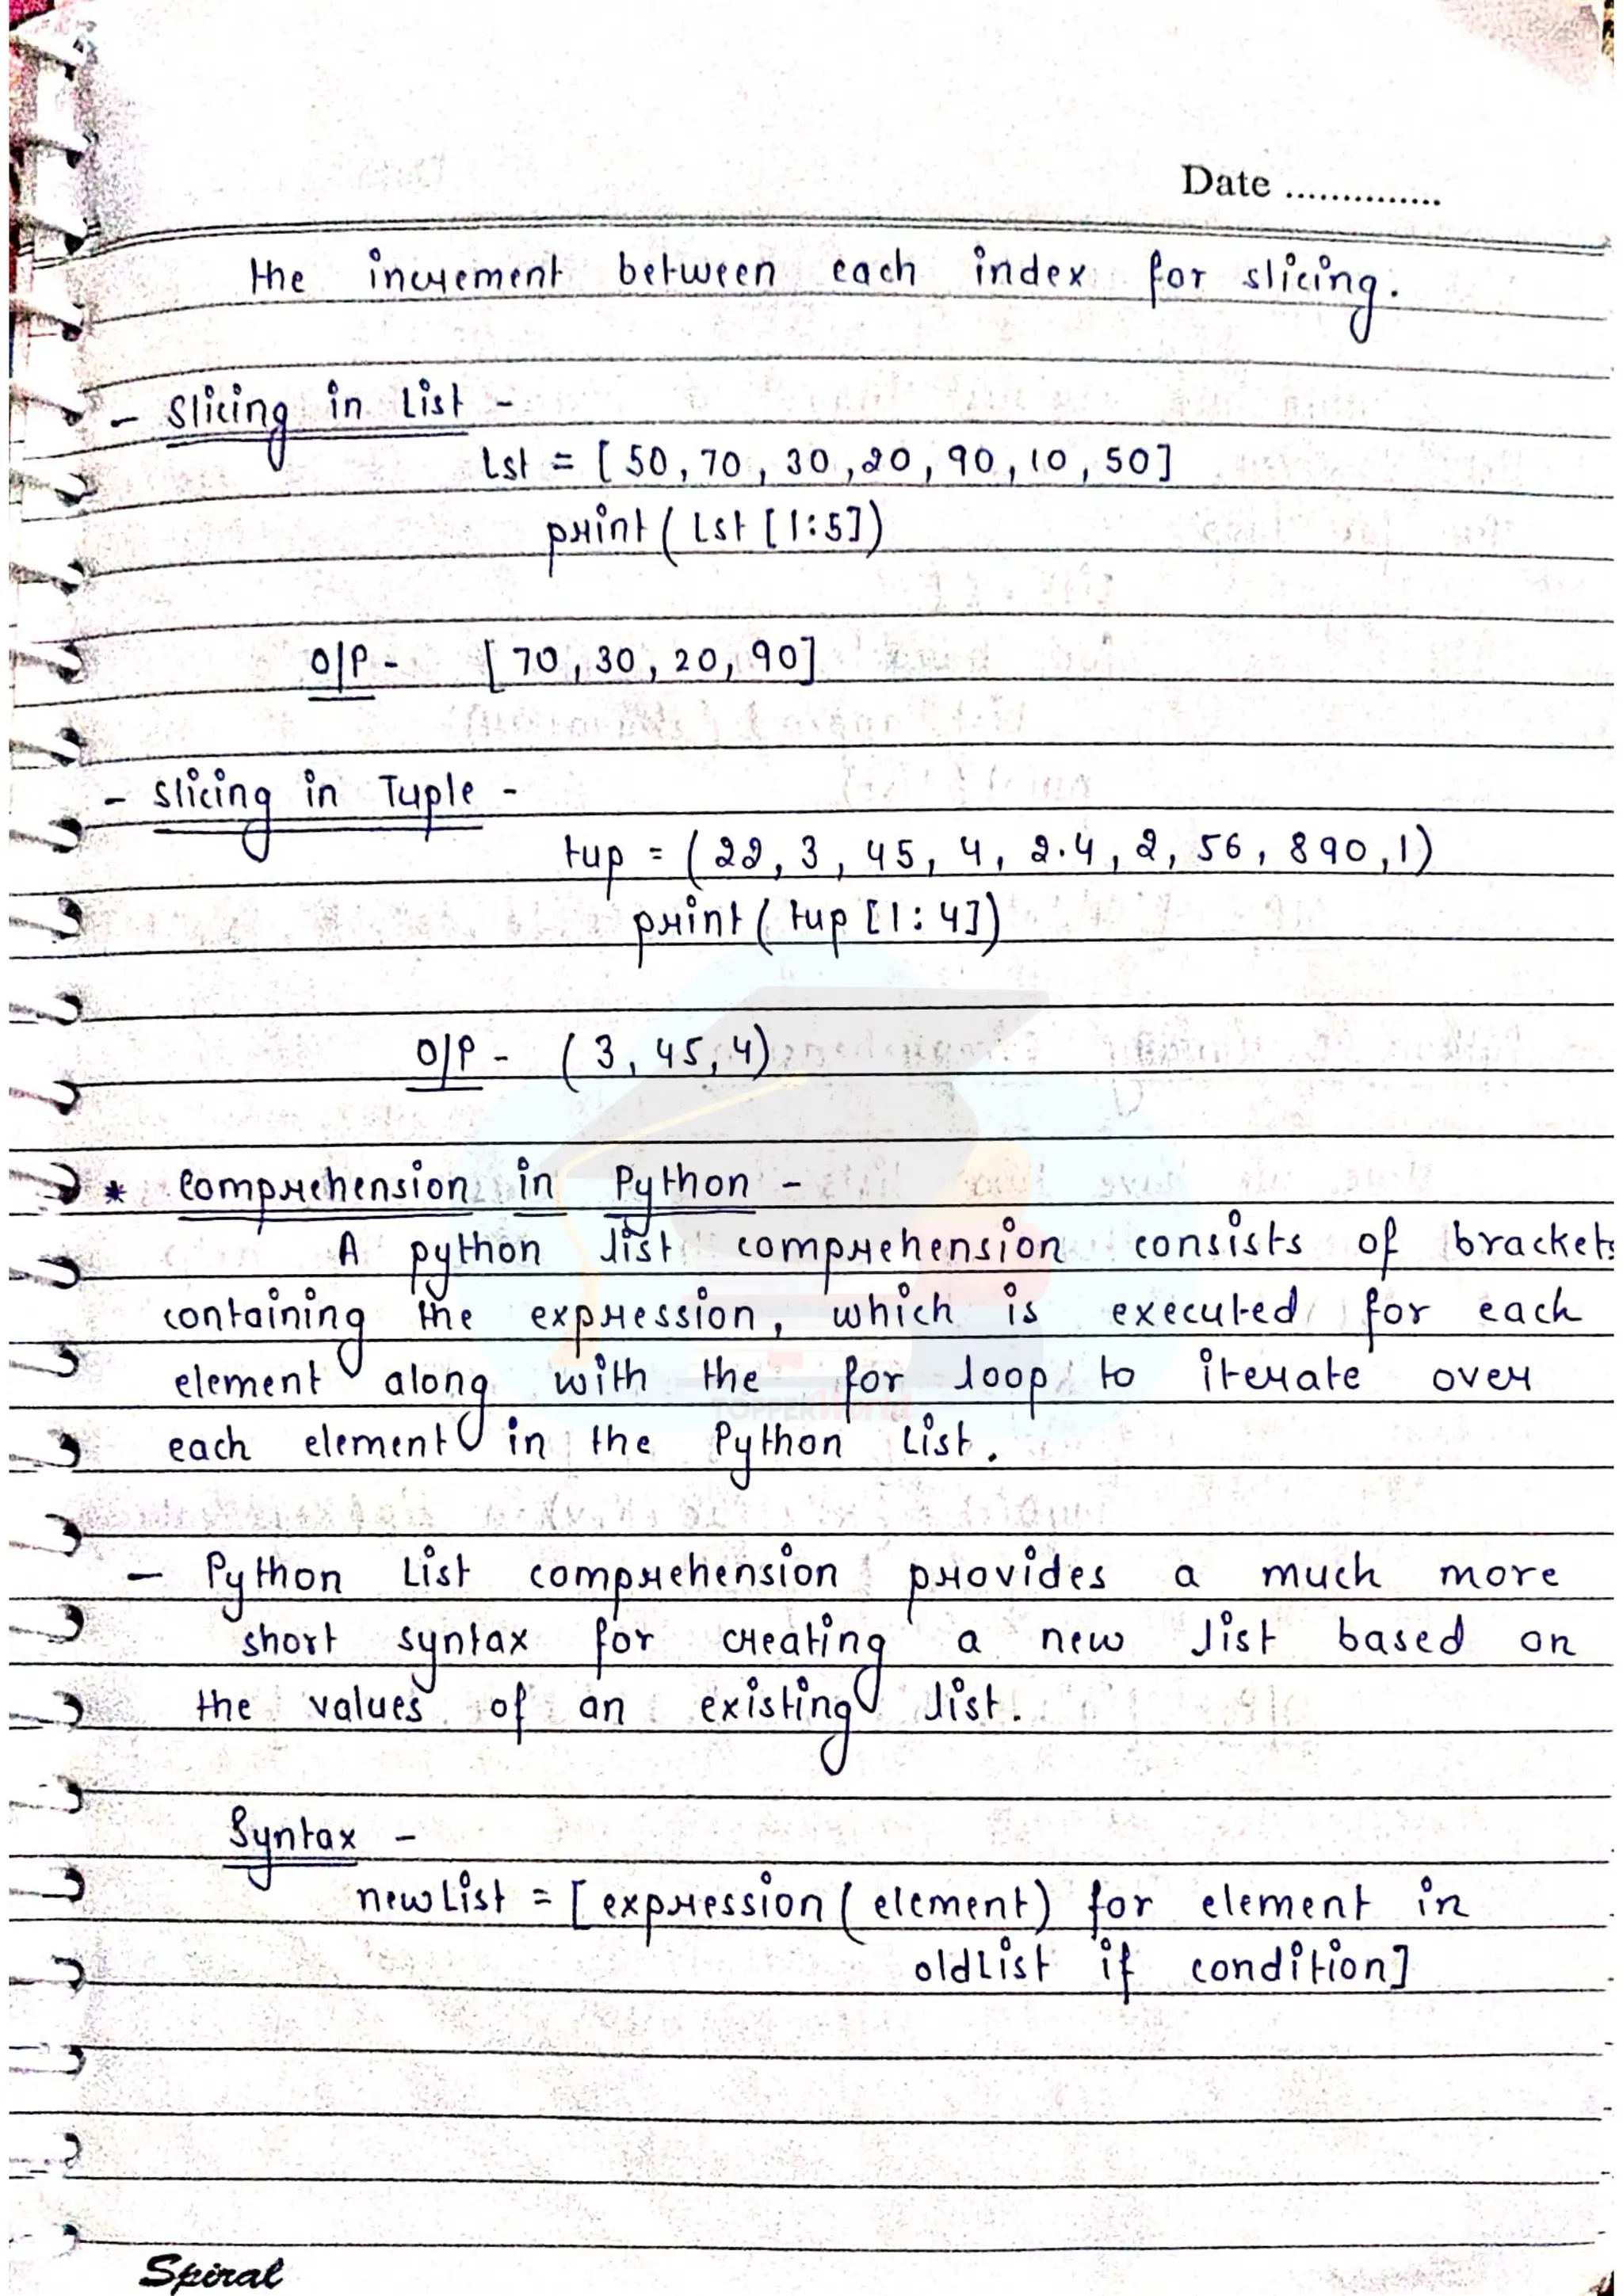 Date ..............
the increment between each index for slicing.
- Slicing in List -
Lst = [50, 70, 30, 20, 90, 10, 50]
print(Lst [1:5])
O/P - [70, 30, 20, 90]
- Slicing in Tuple -
tup = (22, 3, 45, 4, 2.4, 2, 56, 890, 1)
print(tup [1:4])
O/P - (3, 45, 4)
* Comprehension in Python -
A python list comprehension consists of brackets
containing the expression, which is executed for each
element along with the for loop to iterate over
TOPPERWorld
each element in the Python List.
- Python List comprehension provides a much more
short syntax for creating a new list based on
the values of an existing list.
Syntax -
newList = [expression(element) for element in
oldList if condition]
Spiral